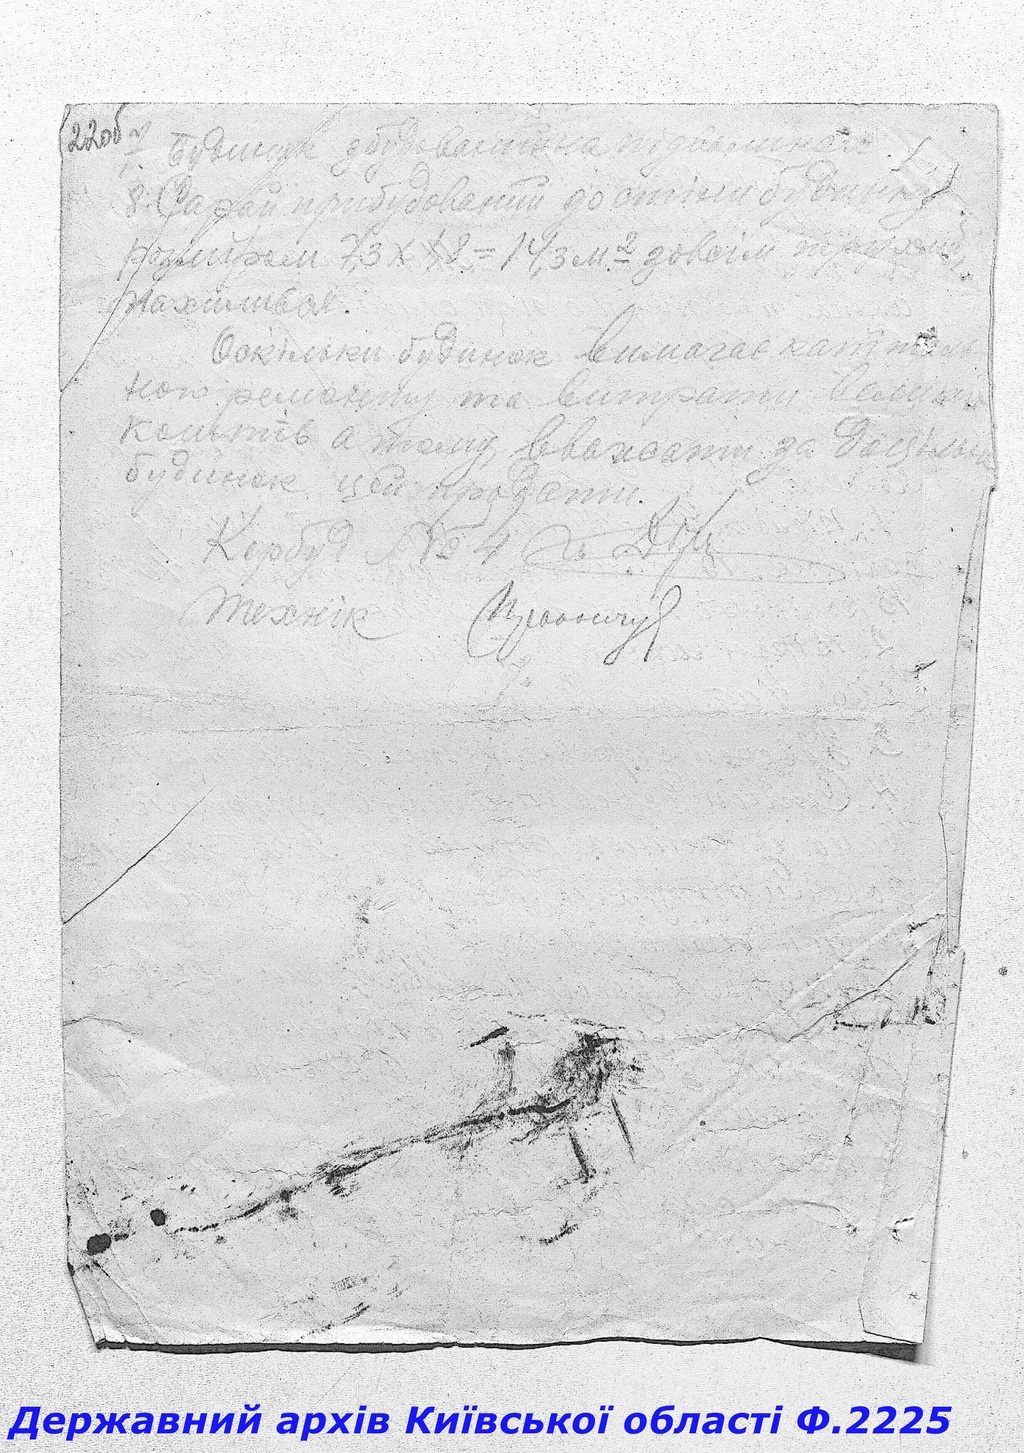 22об
Будинок збудований на підвалинах.
8. Сарай прибудований до стіни будинку
розміром 7,3 х 1,8 = 14,3 м.2 зовсім
нахилився.
Оскільки будинок вимагає капіталь
ного ремонту та витрати великих
коштів а тому, вважати за доцільн
будинок цей продати.
Кербуд № 4
Технік
Державний архів Київської області Ф.2225